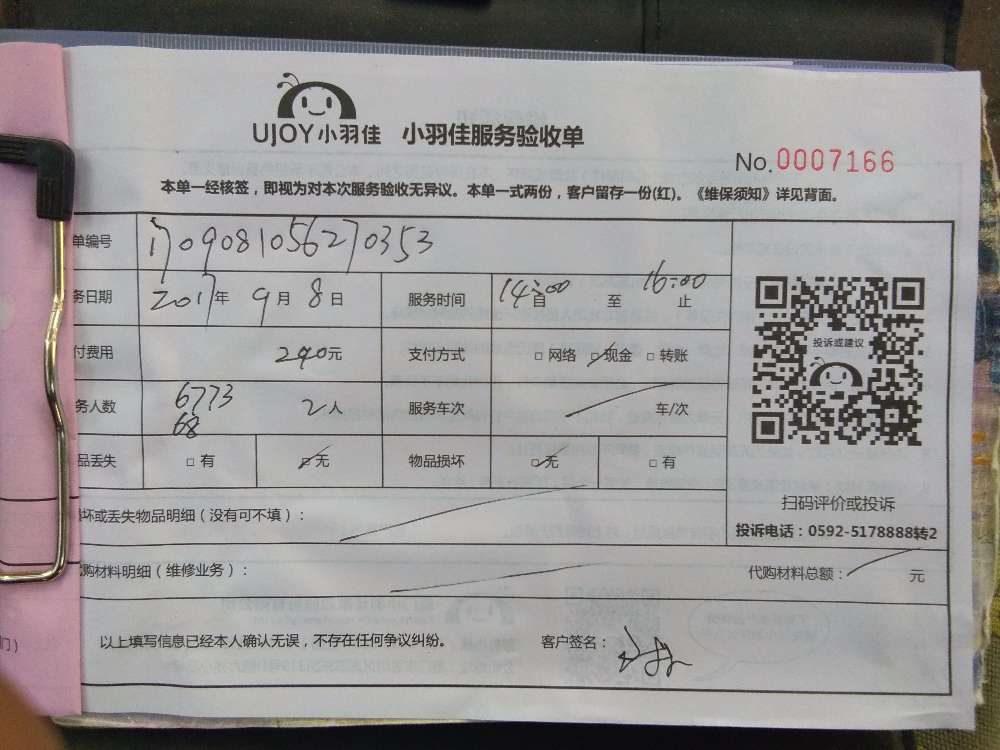 UJOY小羽佳 小羽佳服务验收单
No.0007166
本单一经核签，即视为对本次服务验收无异议。本单一式两份，客户留存一份(红)。《维保须知》详见背面。
单编号 1709081056270353
务日期 2017年 9月 8日 服务时间 14:00 首 至 16:00 止
付费用 240元 支付方式 □网络 ☑现金 □转账
务人数 6773 68 2人 服务车次 车/次
品丢失 □有 ☑无 物品损坏 ☑无 □有
坏或丢失物品明细（没有可不填）：
购材料明细（维修业务）： 代购材料总额： 元
投诉或建议
扫码评价或投诉
投诉电话：0592-5178888转2
以上填写信息已经本人确认无误，不存在任何争议纠纷。 客户签名：
门）